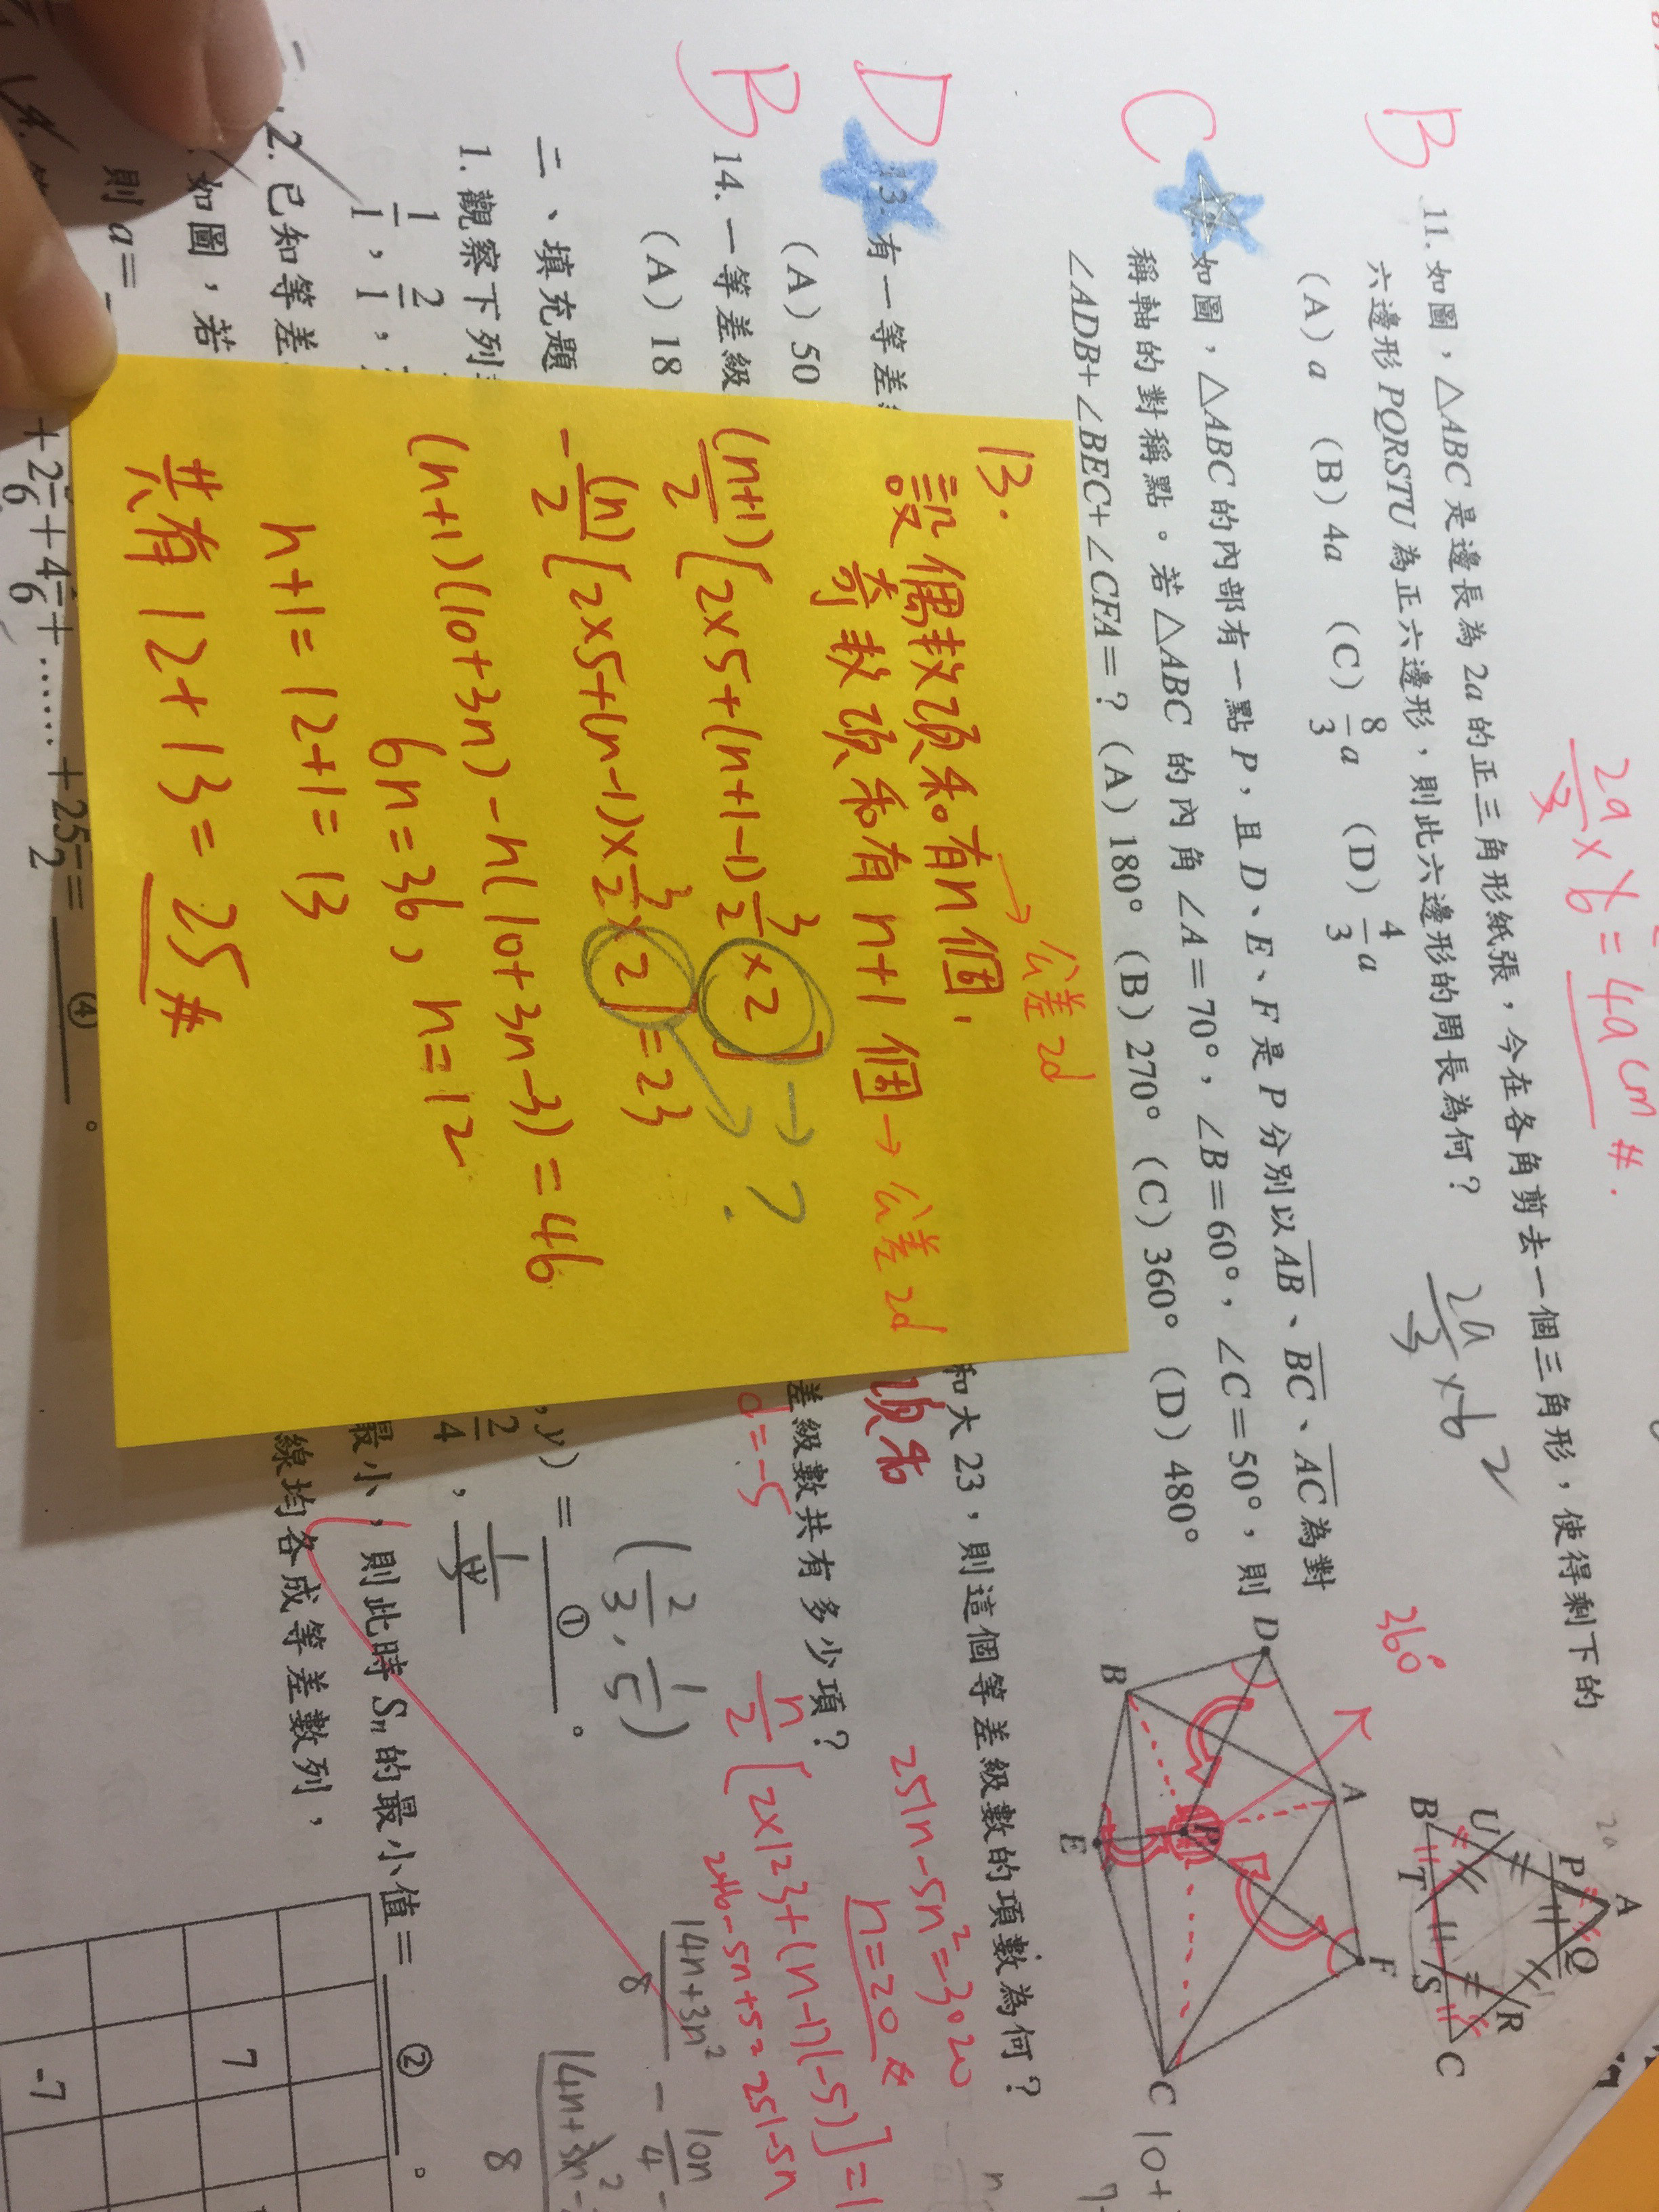 2a/3 × 6 = 4a cm #.
2a/3 × 6
B
11. 如圖，△ABC 是邊長為 2a 的正三角形紙張，今在各角剪去一個三角形，使得剩下的
六邊形 PQRSTU 為正六邊形，則此六邊形的周長為何？
(A) a (B) 4a (C) 8/3 a (D) 4/3 a
A
P Q
U R
B T S C
C
如圖，△ABC 的內部有一點 P，且 D、E、F 是 P 分別以 AB、BC、AC 為對
稱軸的對稱點。若 △ABC 的內角 ∠A＝70°，∠B＝60°，∠C＝50°，則
∠ADB+∠BEC+∠CFA＝？ (A) 180° (B) 270° (C) 360° (D) 480°
360°
D A F
B P C
E
D
13. 有一等差
和大 23，則這個等差級數的項數為何？
(A) 50
項和
B
14. 一等差級
差級數共有多少項？
(A) 18
d=-5
251n-5n²=3020
n=20 #
n/2 [2×123+(n-1)(-5)]=1
246-5n+5=251-5n
14n+3n²/8 - 10n/4 -
二、填充題
1. 觀察下列
, y) = ① 。
(2/3, 1/5)
1/1，2/1，
2/4，
2. 已知等差
最小，則此時 Sn 的最小值＝ ② 。
如圖，若
線均各成等差數列，
則 a＝
7
-7
+2 /6+4 /6+……+25 /2＝ ④ 。
13.
→ 公差 2d
設偶數項和有 n 個，
奇數項和有 n+1 個 → 公差 2d
(n+1)/2 [2×5+(n+1-1) 3/2 ×2] → ?
-(n)/2 [2×5+(n-1)× 3/2 ×2]=23
(n+1)(10+3n)-n(10+3n-3)=46
6n=36, n=12
n+1=12+1=13
共有 12+13= 25 #